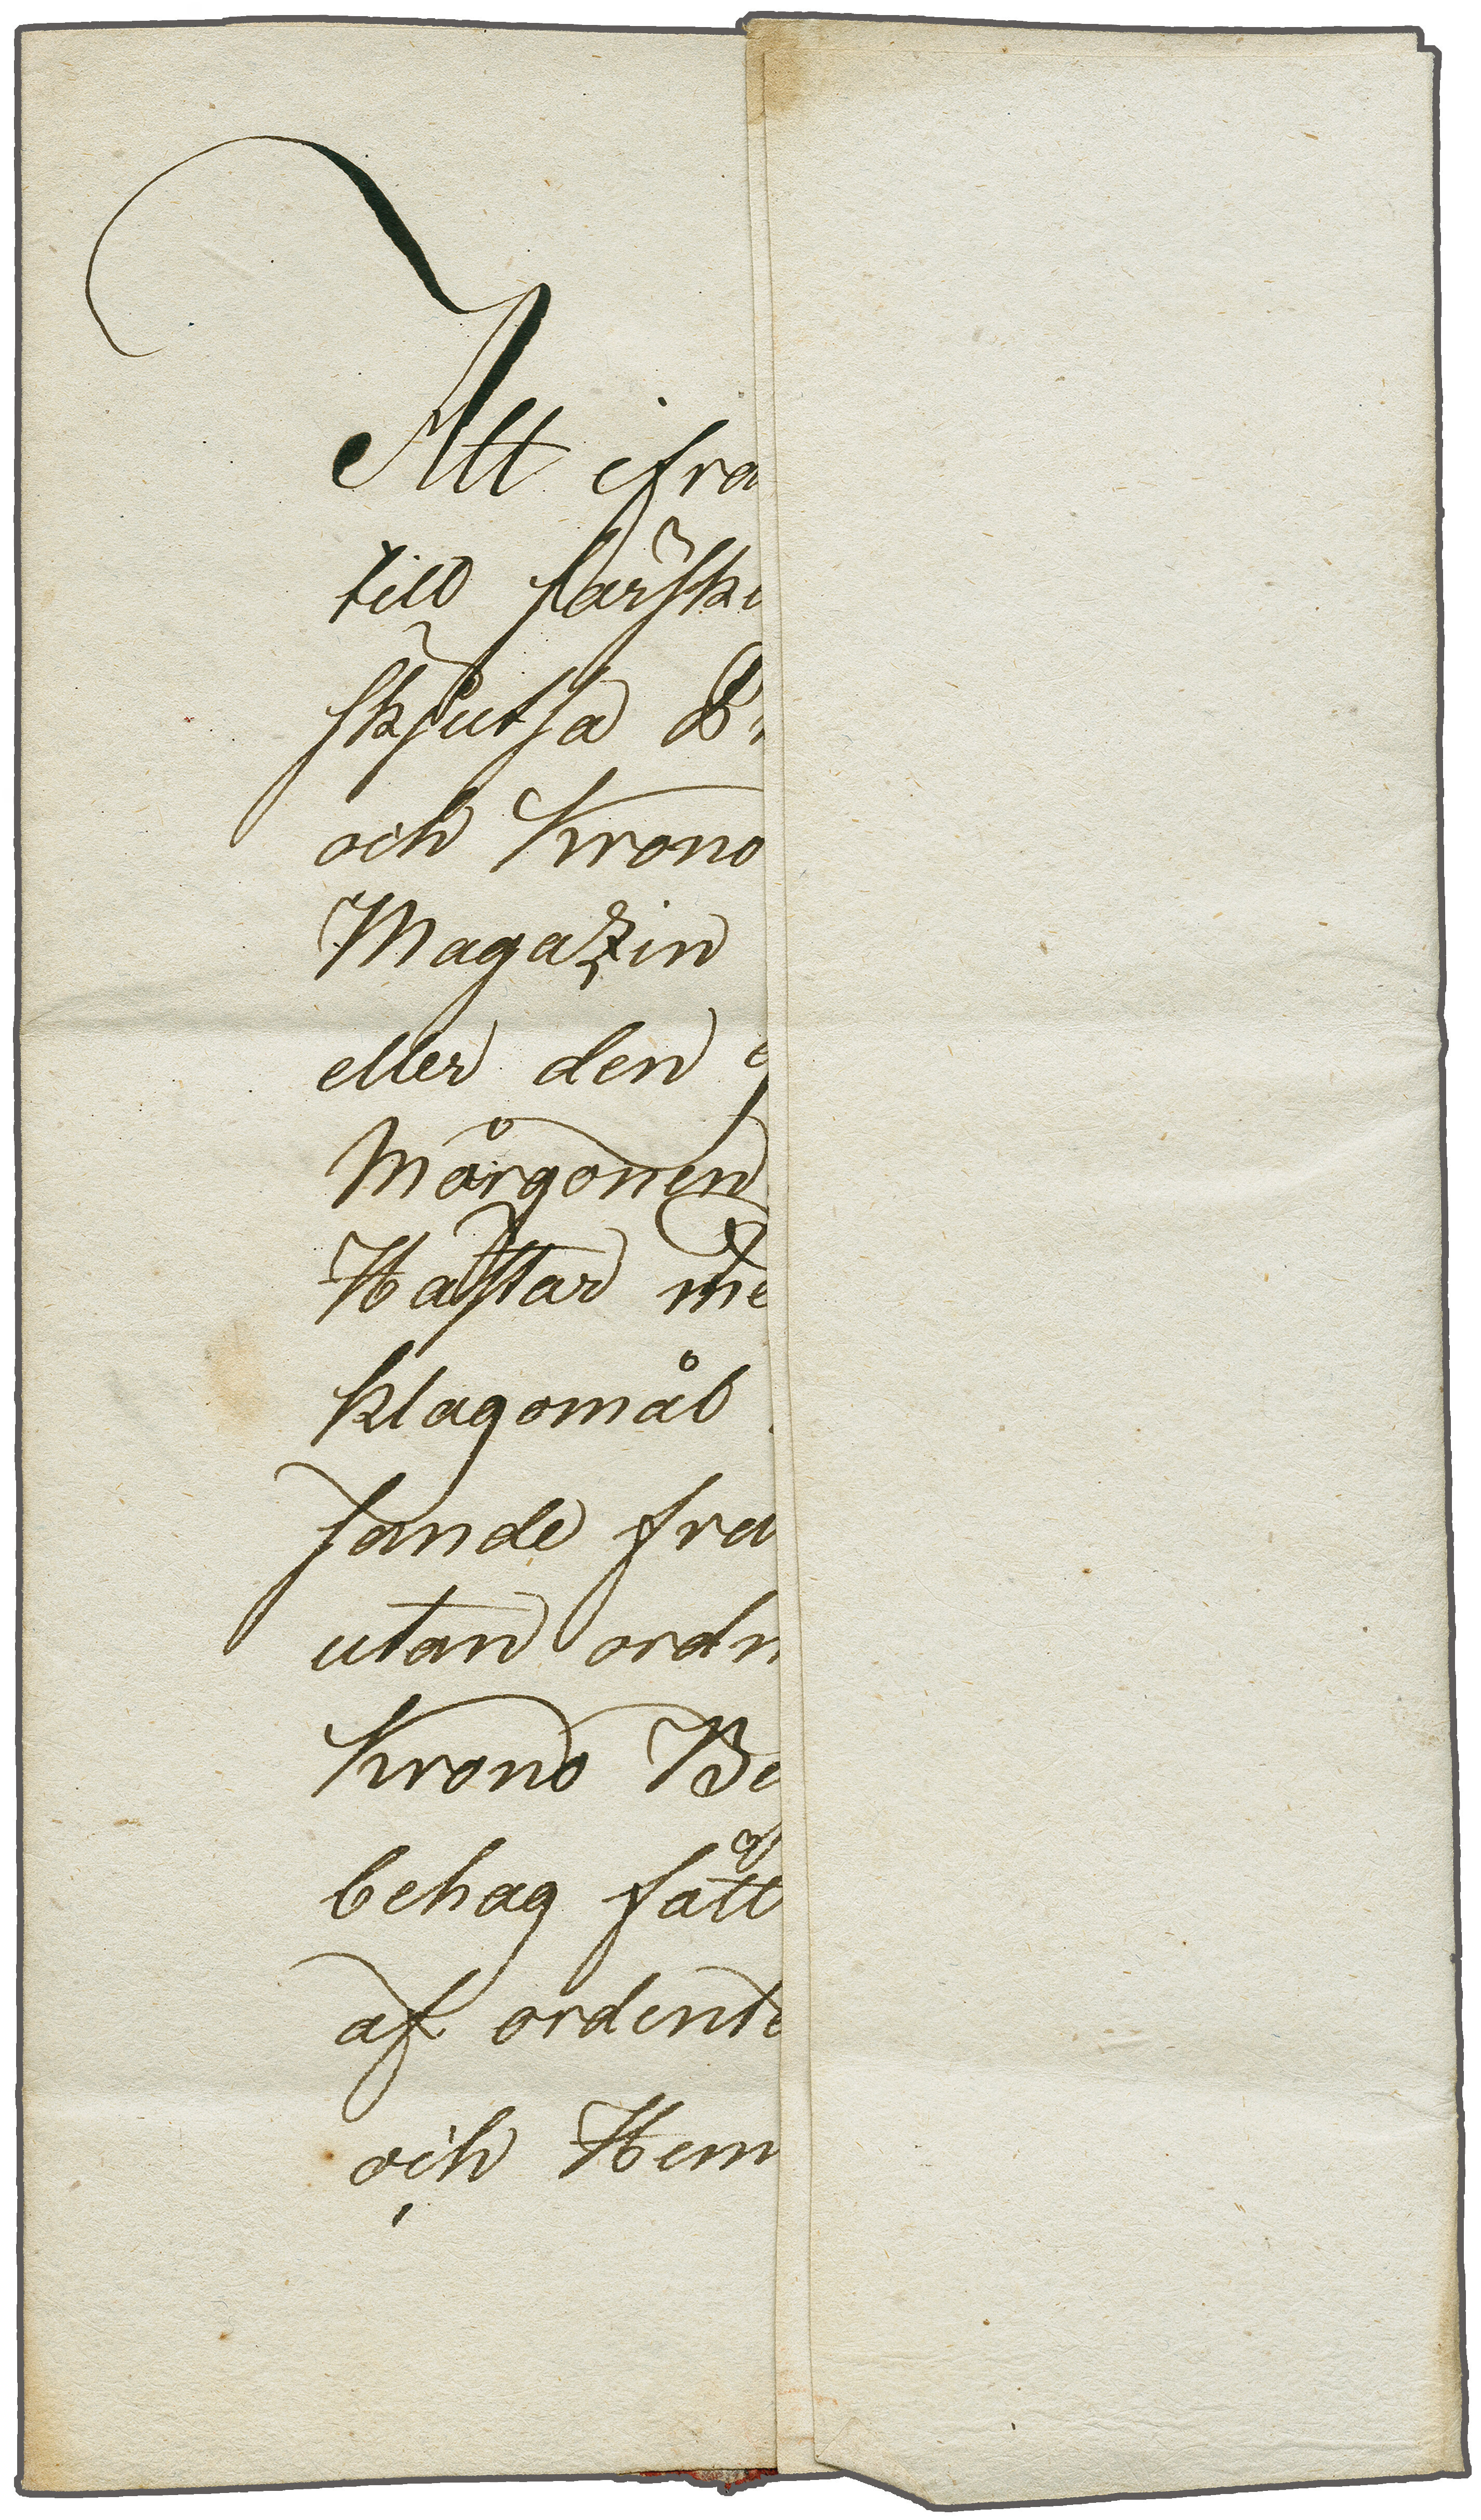 Att ifra
till särski
skjutsa B
och Krono
Magazin
eller den
Mårgonen
Hästar me
klagomål
sande fra
utan ordn
Krono Be
behag fått
af ordente
och Hem